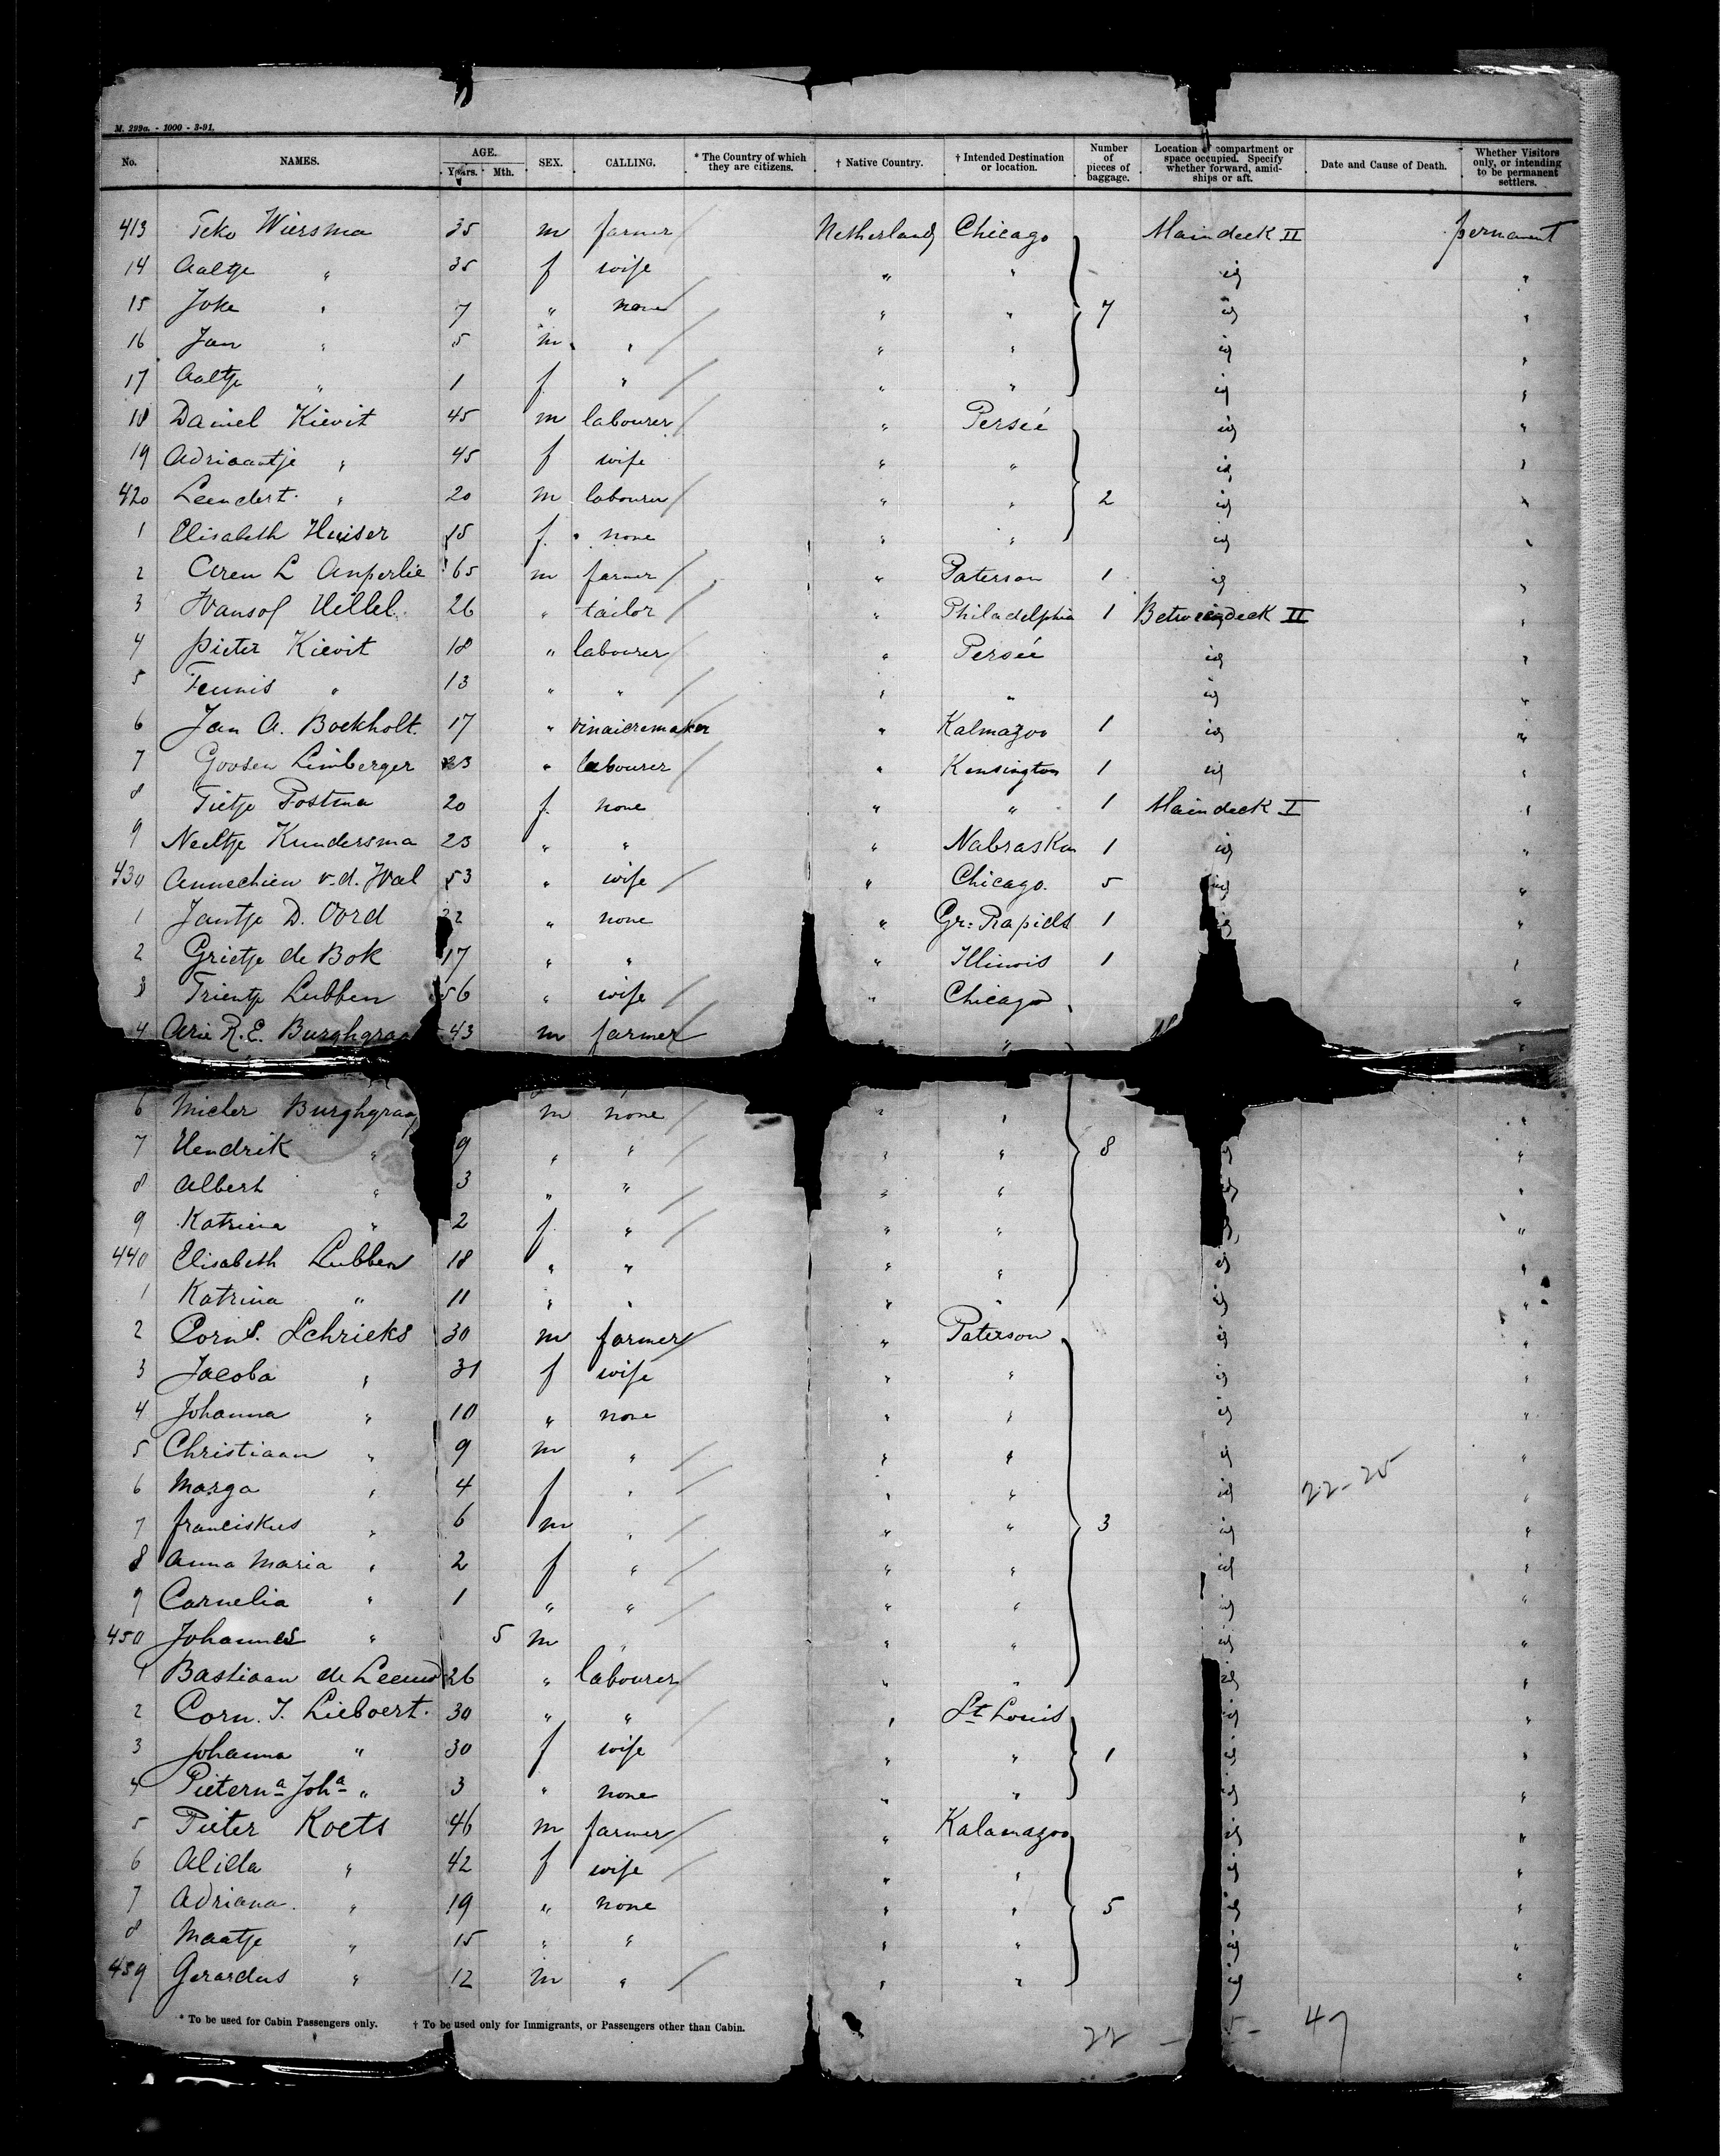 M. 299a. - 1000 - 3-91.
No. NAMES. AGE. Years. Mth. SEX. CALLING. * The Country of which they are citizens. † Native Country. † Intended Destination or location. Number of pieces of baggage. Location of compartment or space occupied. Specify whether forward, amidships or aft. Date and Cause of Death. Whether Visitors only, or intending to be permanent settlers.
413 Teko Wiersma 35 m farmer Netherlands Chicago Maindeck II permanent
14 Aaltje " 35 f wife " " id "
15 Joke " 7 " none " " 7 id "
16 Jan " 5 m " " " id "
17 Aaltje " 1 f " " " id "
18 Daniel Kievit 45 m labourer " Perseé id "
19 Adriaantje " 45 f wife " " id "
420 Leendert " 20 m labourer " " 2 id "
1 Elisabeth Huiser 15 f none " " id "
2 Aren L Anperlie 65 m farmer " Paterson 1 id "
3 26 " tailor " Philadelphia 1 Betweendeck II "
4 Pieter Kievit 18 " labourer " Perseé id "
5 Teunis " 13 " " " " id "
6 Jan A. Boekholt 17 " " Kalmazoo 1 id "
7 Goosen Limberger 23 " labourer " Kensington 1 id "
8 Tietje Postma 20 f. none " " 1 Maindeck I "
9 Neeltje Kundersma 23 " " " Nabraska 1 id "
430 Annechien v.d. Wal 53 " wife " Chicago. 5 id "
1 Jantje D. Oord 22 " none " Gr: Rapids 1 id "
2 Grietje de Bok 17 " " " Illinois 1 "
3 Trientje Lubben 56 " wife " Chicago "
4 Arie R. E. Burghgraa 43 m farmer " "
6 Burghgraaf m none " " "
7 Hendrik " 9 " " " " 8 id "
8 Albert " 3 " " " " id "
9 Katrina " 2 f " " " "
440 Elisabeth Lubben 18 " " " " id "
1 Katrina " 11 " " " " id "
2 Corns. Schrieks 30 m farmer " Paterson id "
3 Jacoba " 31 f wife " " id "
4 Johanna " 10 " none " " id "
5 Christiaan " 9 m " " " id "
6 Marga " 4 f " " " id 22-25 "
7 franciskus " 6 m " " " 3 id "
8 Anna Maria " 2 f " " " id "
9 Cornelia " 1 " " " " id "
450 Johannes " 5 m " " " id "
1 Bastiaan de Leeuw 26 " labourer " " id "
2 Corn. J. Lieboert. 30 " " " St Louis id "
3 Johanna " 30 f wife " " 1 id "
4 Pieterna Joha " 3 " none " " id "
5 Pieter Koets 46 m farmer " Kalamazoo id "
6 Alida " 42 f wife " " id "
7 Adriana " 19 " none " " 5 id "
8 Maatje " 15 " " " " id "
459 Gerardus " 12 m " " " id "
* To be used for Cabin Passengers only. † To be used only for Immigrants, or Passengers other than Cabin.
22 - 5 - 47